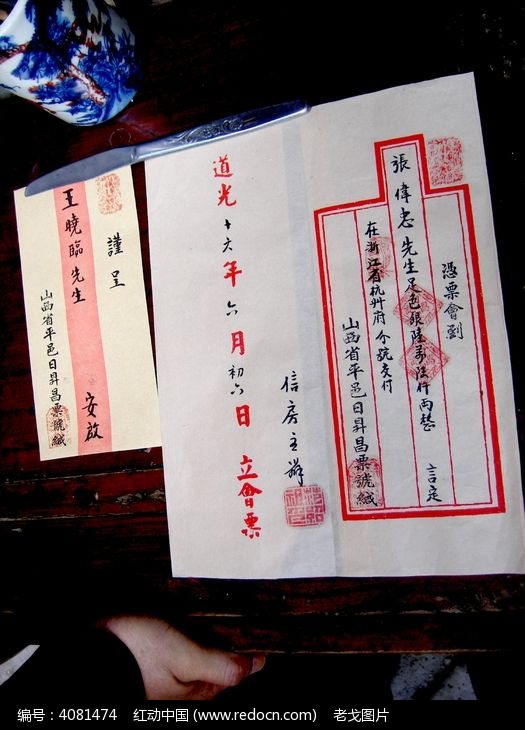 憑票會到
張偉忠先生足色銀陸萬伍仟兩整
言定
在浙江省杭州府分號交付
山西省平邑日昇昌票號緘
信房主辦
道光十六年六月初六日立會票
謹呈
王曉臨先生 安啟
山西省平邑日昇昌票號緘
编号：4081474 红动中国 (www.redocn.com) 老戈图片